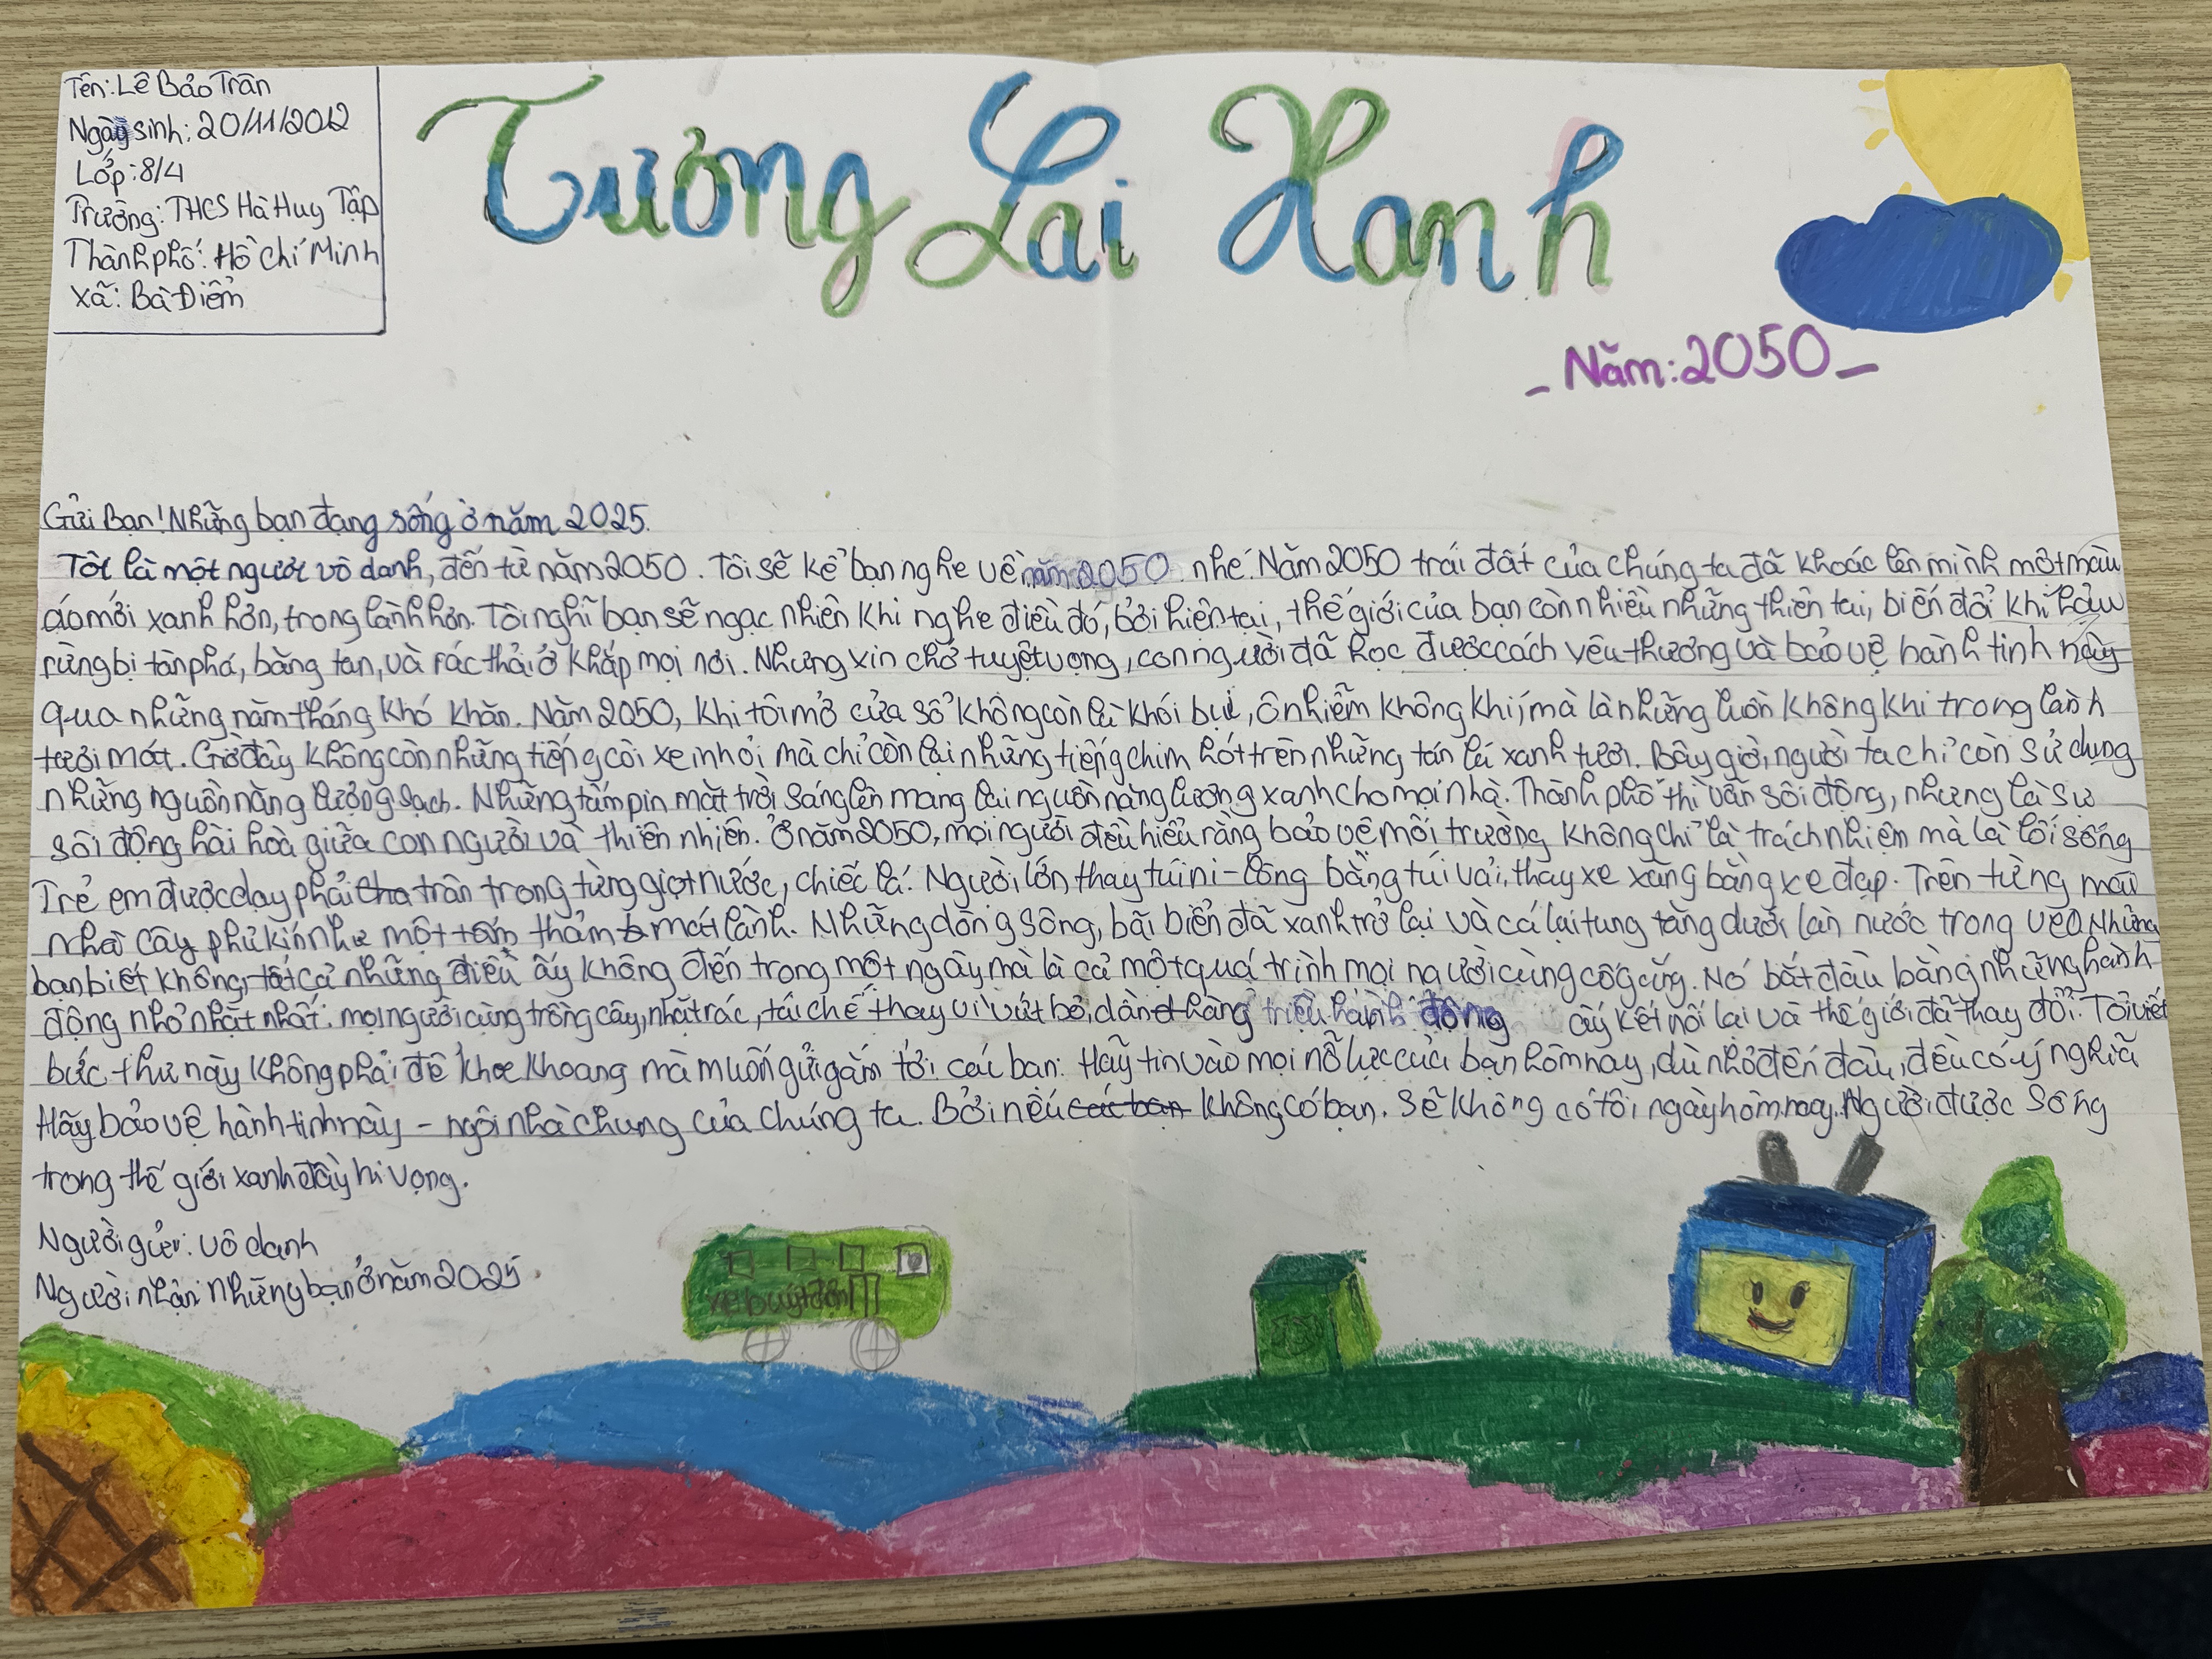 Tên: Lê Bảo Trân
Ngày sinh: 20/11/2012
Lớp: 8/4
Trường: THCS Hà Huy Tập
Thành phố: Hồ Chí Minh
Xã: Bà Điểm
Tương Lai Xanh
- Năm: 2050 -
Gửi Bạn! Những bạn đang sống ở năm 2025.
Tôi là một người vô danh, đến từ năm 2050. Tôi sẽ kể bạn nghe về năm 2050 nhé. Năm 2050 trái đất của chúng ta đã khoác lên mình một màu
áo mới xanh hơn, trong lành hơn. Tôi nghĩ bạn sẽ ngạc nhiên khi nghe điều đó, bởi hiện tại, thế giới của bạn còn nhiều những thiên tai, biến đổi khí hậu
rừng bị tàn phá, băng tan, và rác thải ở khắp mọi nơi. Nhưng xin chớ tuyệt vọng, con người đã học được cách yêu thương và bảo vệ hành tinh này
qua những năm tháng khó khăn. Năm 2050, khi tôi mở cửa sổ không còn là khói bụi, ô nhiễm không khí, mà là những luồn không khí trong lành
tươi mát. Giờ đây không còn những tiếng còi xe inh ỏi mà chỉ còn lại những tiếng chim hót trên những tán lá xanh tươi. Bây giờ, người ta chỉ còn sử dụng
những nguồn năng lượng sạch. Những tấm pin mặt trời sáng lên mang lại nguồn năng lượng xanh cho mọi nhà. Thành phố thì vẫn sôi động, nhưng là sự
sôi động hài hoà giữa con người và thiên nhiên. Ở năm 2050, mọi người đều hiểu rằng bảo vệ môi trường không chỉ là trách nhiệm mà là lối sống
Trẻ em được dạy phải trân trọng từng giọt nước, chiếc lá. Người lớn thay túi ni-lông bằng túi vải, thay xe xăng bằng xe đạp. Trên từng mái
nhà cây phủ kín như một tấm thảm mát lành. Những dòng sông, bãi biển đã xanh trở lại và cá lại tung tăng dưới làn nước trong veo. Những
bạn biết không, tất cả những điều ấy không đến trong một ngày mà là cả một quá trình mọi người cùng cố gắng. Nó bắt đầu bằng những hành
động nhỏ nhặt nhất: mọi người cùng trồng cây, nhặt rác, tái chế thay vì vứt bỏ, dần hàng triệu hành động ấy kết nối lại và thế giới đã thay đổi. Tôi viết
bức thư này không phải để khoe khoang mà muốn gửi gắm tới các bạn: Hãy tin vào mọi nỗ lực của bạn hôm nay, dù nhỏ đến đâu, đều có ý nghĩa
Hãy bảo vệ hành tinh này - ngôi nhà chung của chúng ta. Bởi nếu không có bạn. Sẽ không có tôi ngày hôm nay. Người được sống
trong thế giới xanh đầy hi vọng.
Người gửi: vô danh
Người nhận: những bạn ở năm 2025.
xe buýt điện